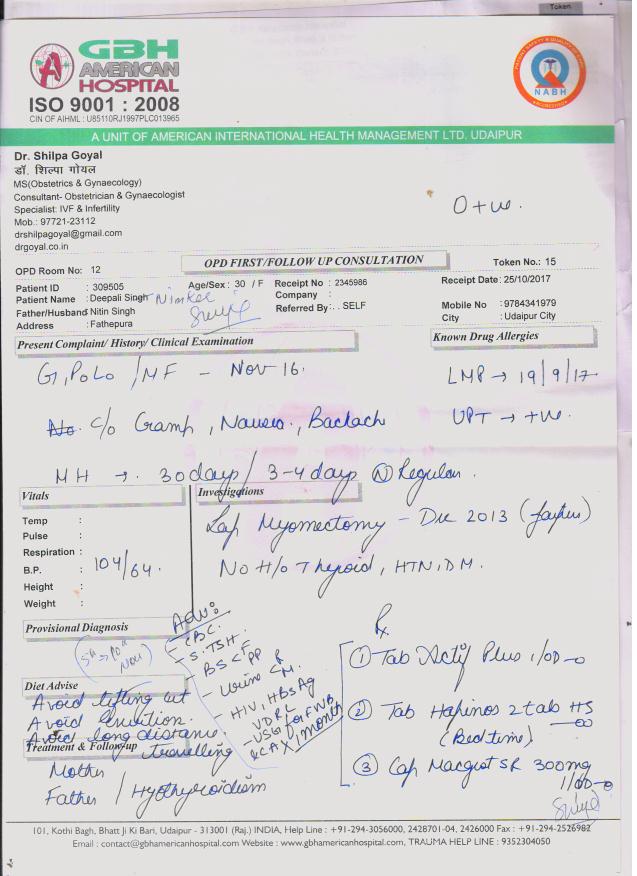 Token
GBH
AMERICAN
HOSPITAL
ISO 9001 : 2008
CIN OF AIHML : U85110RJ1997PLC013965
NABH
A UNIT OF AMERICAN INTERNATIONAL HEALTH MANAGEMENT LTD. UDAIPUR
Dr. Shilpa Goyal
डॉ. शिल्पा गोयल
MS(Obstetrics & Gynaecology)
Consultant- Obstetrician & Gynaecologist
Specialist: IVF & Infertility
Mob.: 97721-23112
drshilpagoyal@gmail.com
drgoyal.co.in
O +ve.
OPD Room No: 12
OPD FIRST/FOLLOW UP CONSULTATION
Token No.: 15
Patient ID : 309505 Age/Sex: 30 / F Receipt No : 2345986 Receipt Date: 25/10/2017
Patient Name : Deepali Singh Company :
Father/Husband Nitin Singh Referred By: . . SELF Mobile No : 9784341979
Address : Fathepura City : Udaipur City
Present Complaint/ History/ Clinical Examination
Known Drug Allergies
G1, P0L0 / MF - Nov 16.
LMP → 19/9/17
No. C/o Cramp, Nausea, Backach
UPT → +ve.
MH → 30 days / 3-4 days (N) Regular.
Vitals
Investigations
Temp :
Pulse :
Respiration :
B.P. : 104/64
Height :
Weight :
Lap Myomectomy - Dec 2013 (Jaipur)
No H/o Thyroid, HTN, DM.
Provisional Diagnosis
5th → 10th Nov
Adv:
- CBC
- S. TSH
- BS < F PP
- Urine < R M
- HIV, HbsAg
VDRL
- USG for FWB
R C A X 1 month
Rx
① Tab Actif Plus 1/OD
② Tab Hapinos 2 tab HS
(Bed time)
③ Cap Macgest SR 300mg
1/OD
Diet Advise
Avoid lifting wt
Avoid
Avoid long distance
travelling
Treatment & Follow-up
Mother
Father / Hyothyroidism
101, Kothi Bagh, Bhatt Ji Ki Bari, Udaipur - 313001 (Raj.) INDIA, Help Line : +91-294-3056000, 2428701-04, 2426000 Fax : +91-294-2526982
Email : contact@gbhamericanhospital.com Website : www.gbhamericanhospital.com, TRAUMA HELP LINE : 9352304050